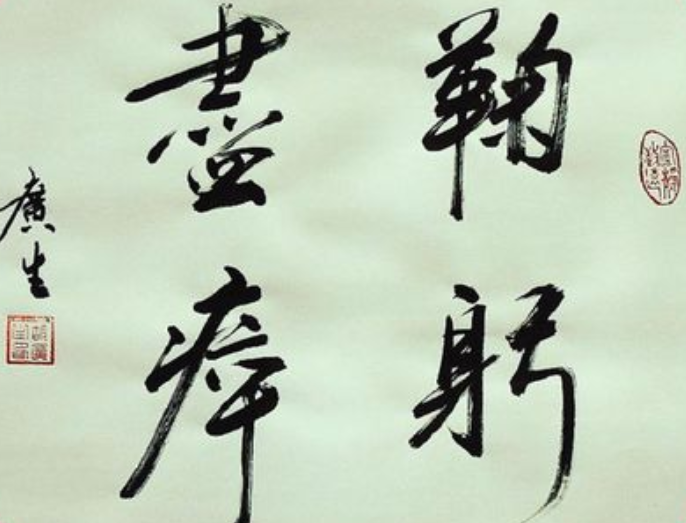 鞠躬
盡瘁
廣生